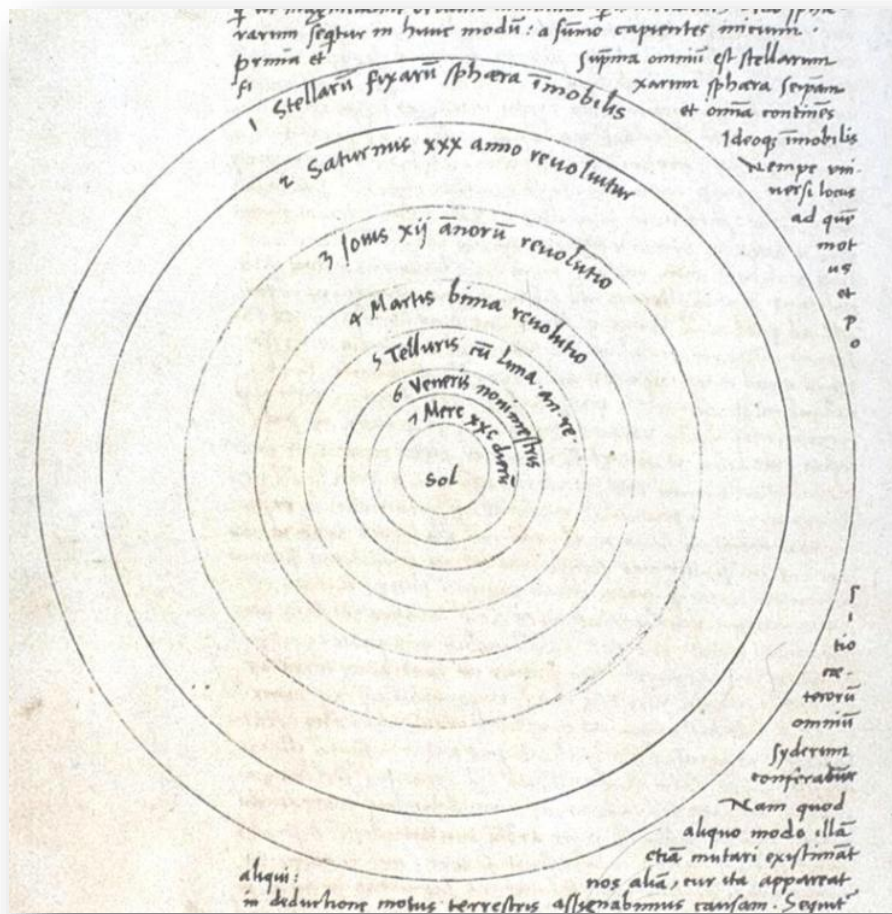 rarum seqtur in hunc modū: a sūmo capientes inicium.
prima et
Supma omniū est stellarum
fi
xarum sphæra seipam
et omīa continēs
Ideoqꝫ īmobilis
Nempe vni-
uersi locus
ad quē
mot
us
et
p
o
1 Stellarū fixarū sphæra īmobilis
2 Saturnus xxx anno reuoluitur
3 Iouis xij ānorū reuolutio
4 Martis bima reuolutio
5 Telluris cū Luna. an. re.
6 Veneris nonimestris
7 Merc xxc dierū
Sol
s
i
tio
cæ-
terorū
omniū
syderum
conferatur
Nam quod
aliquo modo illā
etiā mutari existimāt
aliqui:
nos aliā, cur ita appareat
in deductione motus terrestris assignabimus causam. Sequit